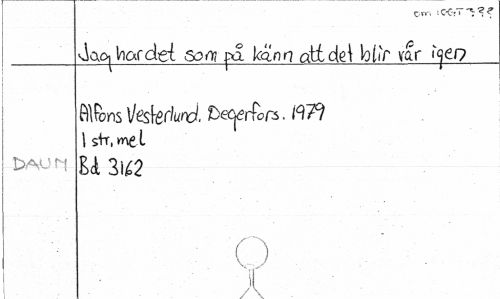 Jag har det som på känn att det blir vår igen
Alfons Vesterlund. Degerfors. 1979
1 str, mel
DAUM Bd 3162